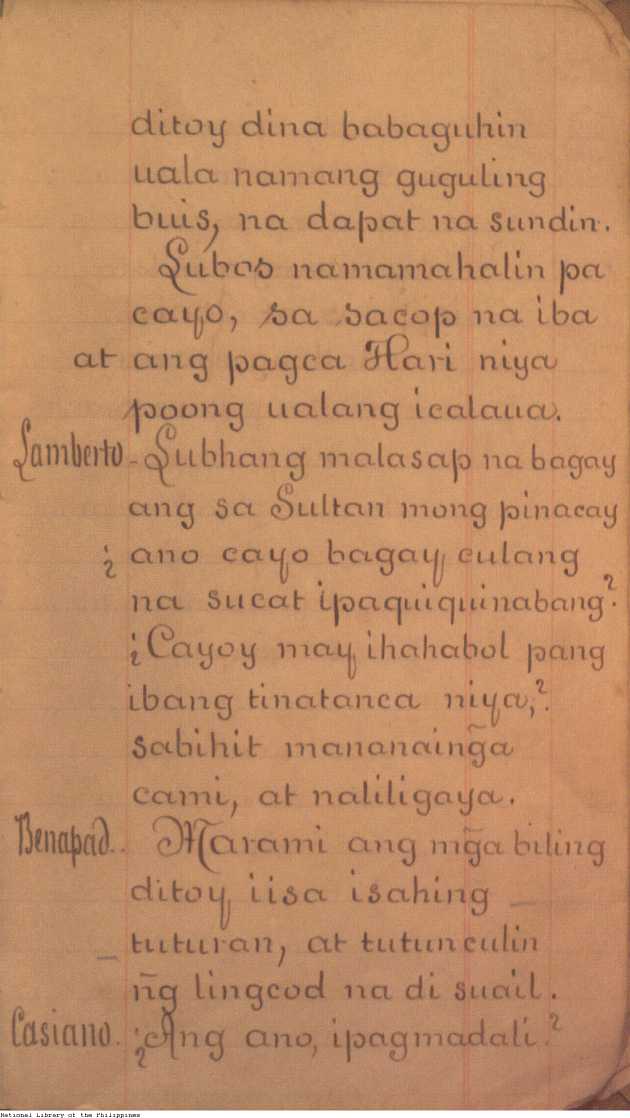 ditoy dina babaguhin
uala namang guguling
buis, na dapat na sundin.
Lubos namamahalin pa
cayo, sa sacop na iba
at ang pagca Hari niya
poong ualang icalaua.
Lamberto - Lubhang malasap na bagay
ang sa Sultan mong pinacay
¿ ano cayo bagay culang
na sucat ipaquiquinabang?
¿Cayoy may ihahabol pang
ibang tinatanca niya,?
sabihit mananaing̃a
cami, at naliligaya.
Benapad.. Marami ang mg̃a biling
ditoy iisa isahing _
_ tuturan, at tutunculin
ñg lingcod na di suail.
Casiano. ¿Ang ano, ipagmadali?
National Library of the Philippines